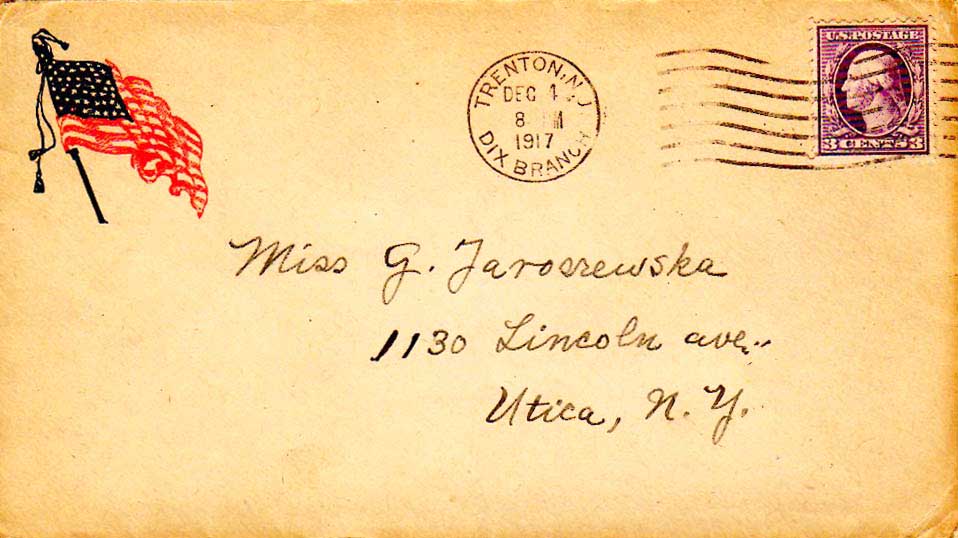 TRENTON, N.J.
DEC 4
8 M
1917
DIX BRANCH
U.S. POSTAGE
3 CENTS 3
Miss G. Jaroszewska
1130 Lincoln ave.
Utica, N.Y.